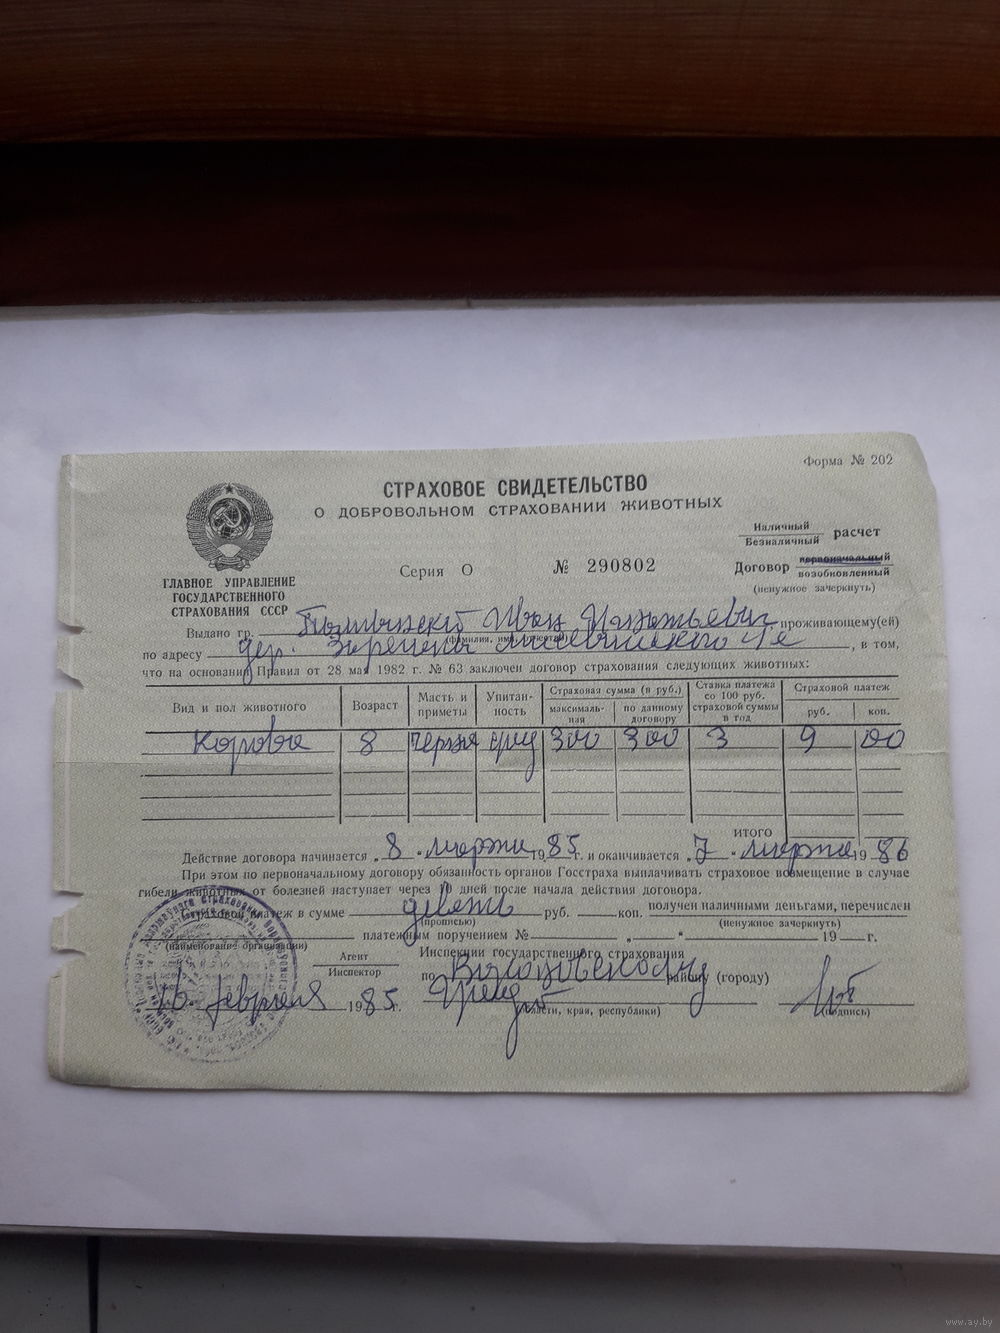 Форма № 202
СТРАХОВОЕ СВИДЕТЕЛЬСТВО
О ДОБРОВОЛЬНОМ СТРАХОВАНИИ ЖИВОТНЫХ
Наличный
Безналичный расчет
Серия О № 290802
Договор первоначальный
возобновленный
(ненужное зачеркнуть)
ГЛАВНОЕ УПРАВЛЕНИЕ
ГОСУДАРСТВЕННОГО
СТРАХОВАНИЯ СССР
Выдано гр. Иван проживающему(ей)
(фамилия, имя, отчество)
по адресу дер. , в том,
что на основании Правил от 28 мая 1982 г. № 63 заключен договор страхования следующих животных:
Вид и пол животного Возраст Масть и приметы Упитанность Страховая сумма (в руб.) максимальная по данному договору Ставка платежа со 100 руб. страховой суммы в год Страховой платеж руб. коп.
Корова 8 черная сред 300 300 3 9 00
ИТОГО
Действие договора начинается „ 8 " марта 1985 г. и оканчивается „ 7 " марта 1986
При этом по первоначальному договору обязанность органов Госстраха выплачивать страховое возмещение в случае
гибели животных от болезней наступает через 10 дней после начала действия договора.
Страховой платеж в сумме девять руб. коп. получен наличными деньгами, перечислен
(прописью) (ненужное зачеркнуть)
платежным поручением № „ " 19 г.
(наименование организации)
Агент
Инспектор
Инспекции государственного страхования
по району (городу)
февраля 1985 г.
(области, края, республики) (подпись)
www.ay.by